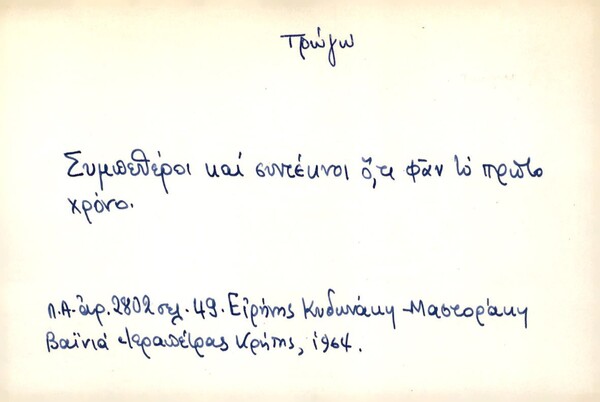 τρώγω
Συμπεθέροι καί συντέκνοι ὅ,τι φᾶν τό πρῶτο
χρόνο.
Λ.Α. ἀρ. 2802 σελ. 49. Εἰρήνης Κυδωνάκη - Μαστοράκη
Βαϊνιά Ἱεραπέτρας Κρήτης, 1964.